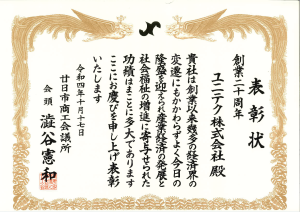 表彰状
創業二十周年
ユニテク株式会社 殿
貴社は創業以来幾多の経済界の
変遷にもかかわらずよく今日の
隆盛を迎えられ産業経済の発展と
社会福祉の増進に寄与された
功績はまことに多大であります
ここにお慶びを申し上げ表彰
いたします
令和四年十月十七日
廿日市商工会議所
会頭 澁谷憲和